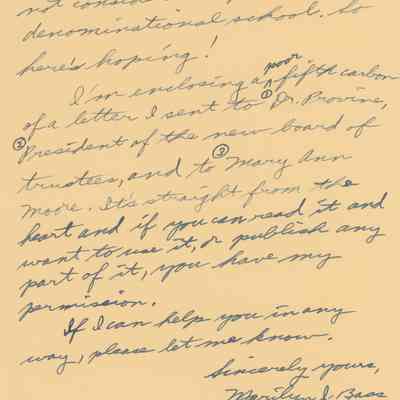 not consid
denominational school. So
here's hoping!
I'm enclosing a poor fifth carbon
of a letter I sent to ① Dr. Provine,
② President of the new board of
trustees, and to ③ Mary Ann
Moore. It's straight from the
heart and if you can read it and
want to use it, or publish any
part of it, you have my
permission.
If I can help you in any
way, please let me know.
Sincerely yours,
Marilyn J. Bass